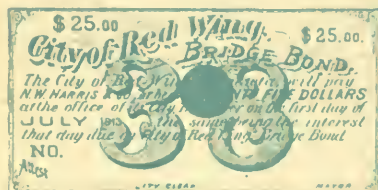 $25.00 $25.00
City of Red Wing.
BRIDGE BOND.
The City of Red Wing will pay
N.W. HARRIS DOLLARS
at the office of City on the first day of
JULY 1913 the same being the interest
that day due on City of Red Wing Bridge Bond
NO. 33
Attest
CITY CLERK MAYOR